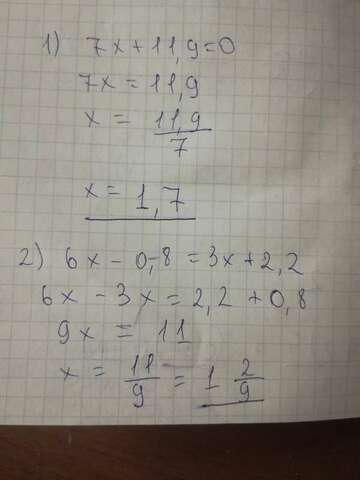 1) 7x+11,9=0
7x=11,9
x = 11,9/7
x= 1,7
2) 6x - 0,8 = 3x+2,2
6x - 3x = 2,2 + 0,8
9x = 11
x = 11/9 = 1 2/9